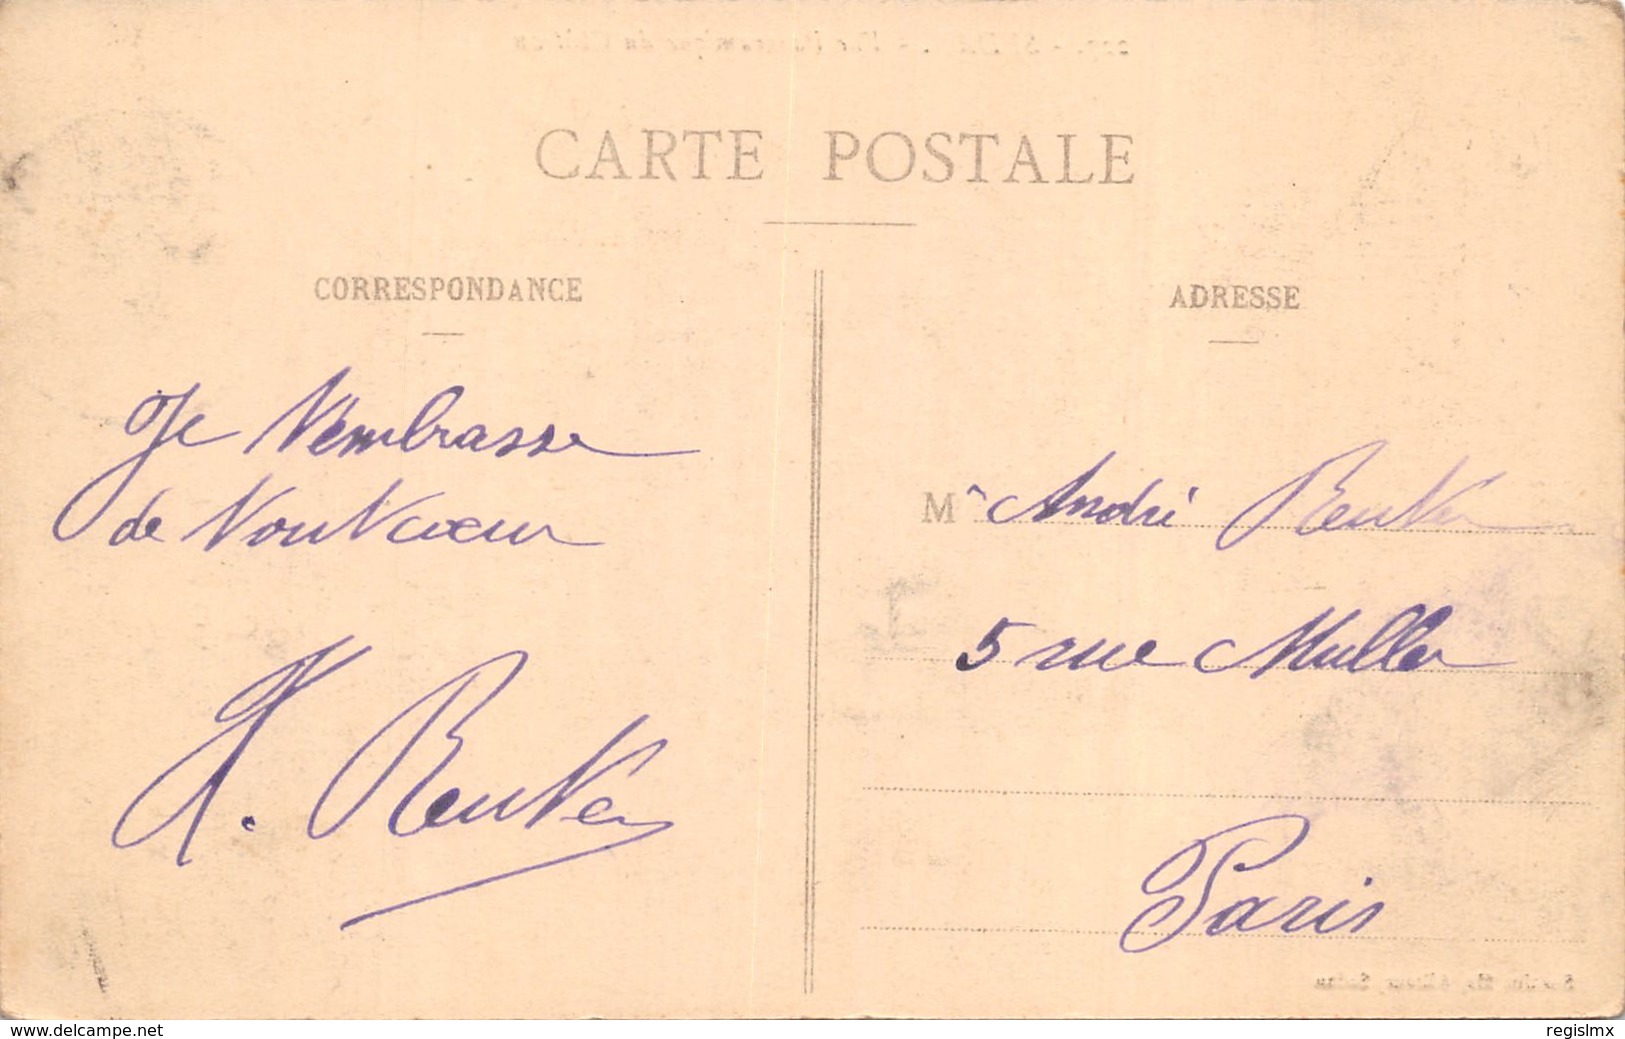 CARTE POSTALE
CORRESPONDANCE
ADRESSE
Je t'embrasse
de tout cœur
Reuter
Mr André Reuter
5 rue Muller
Paris
www.delcampe.net
regislmx